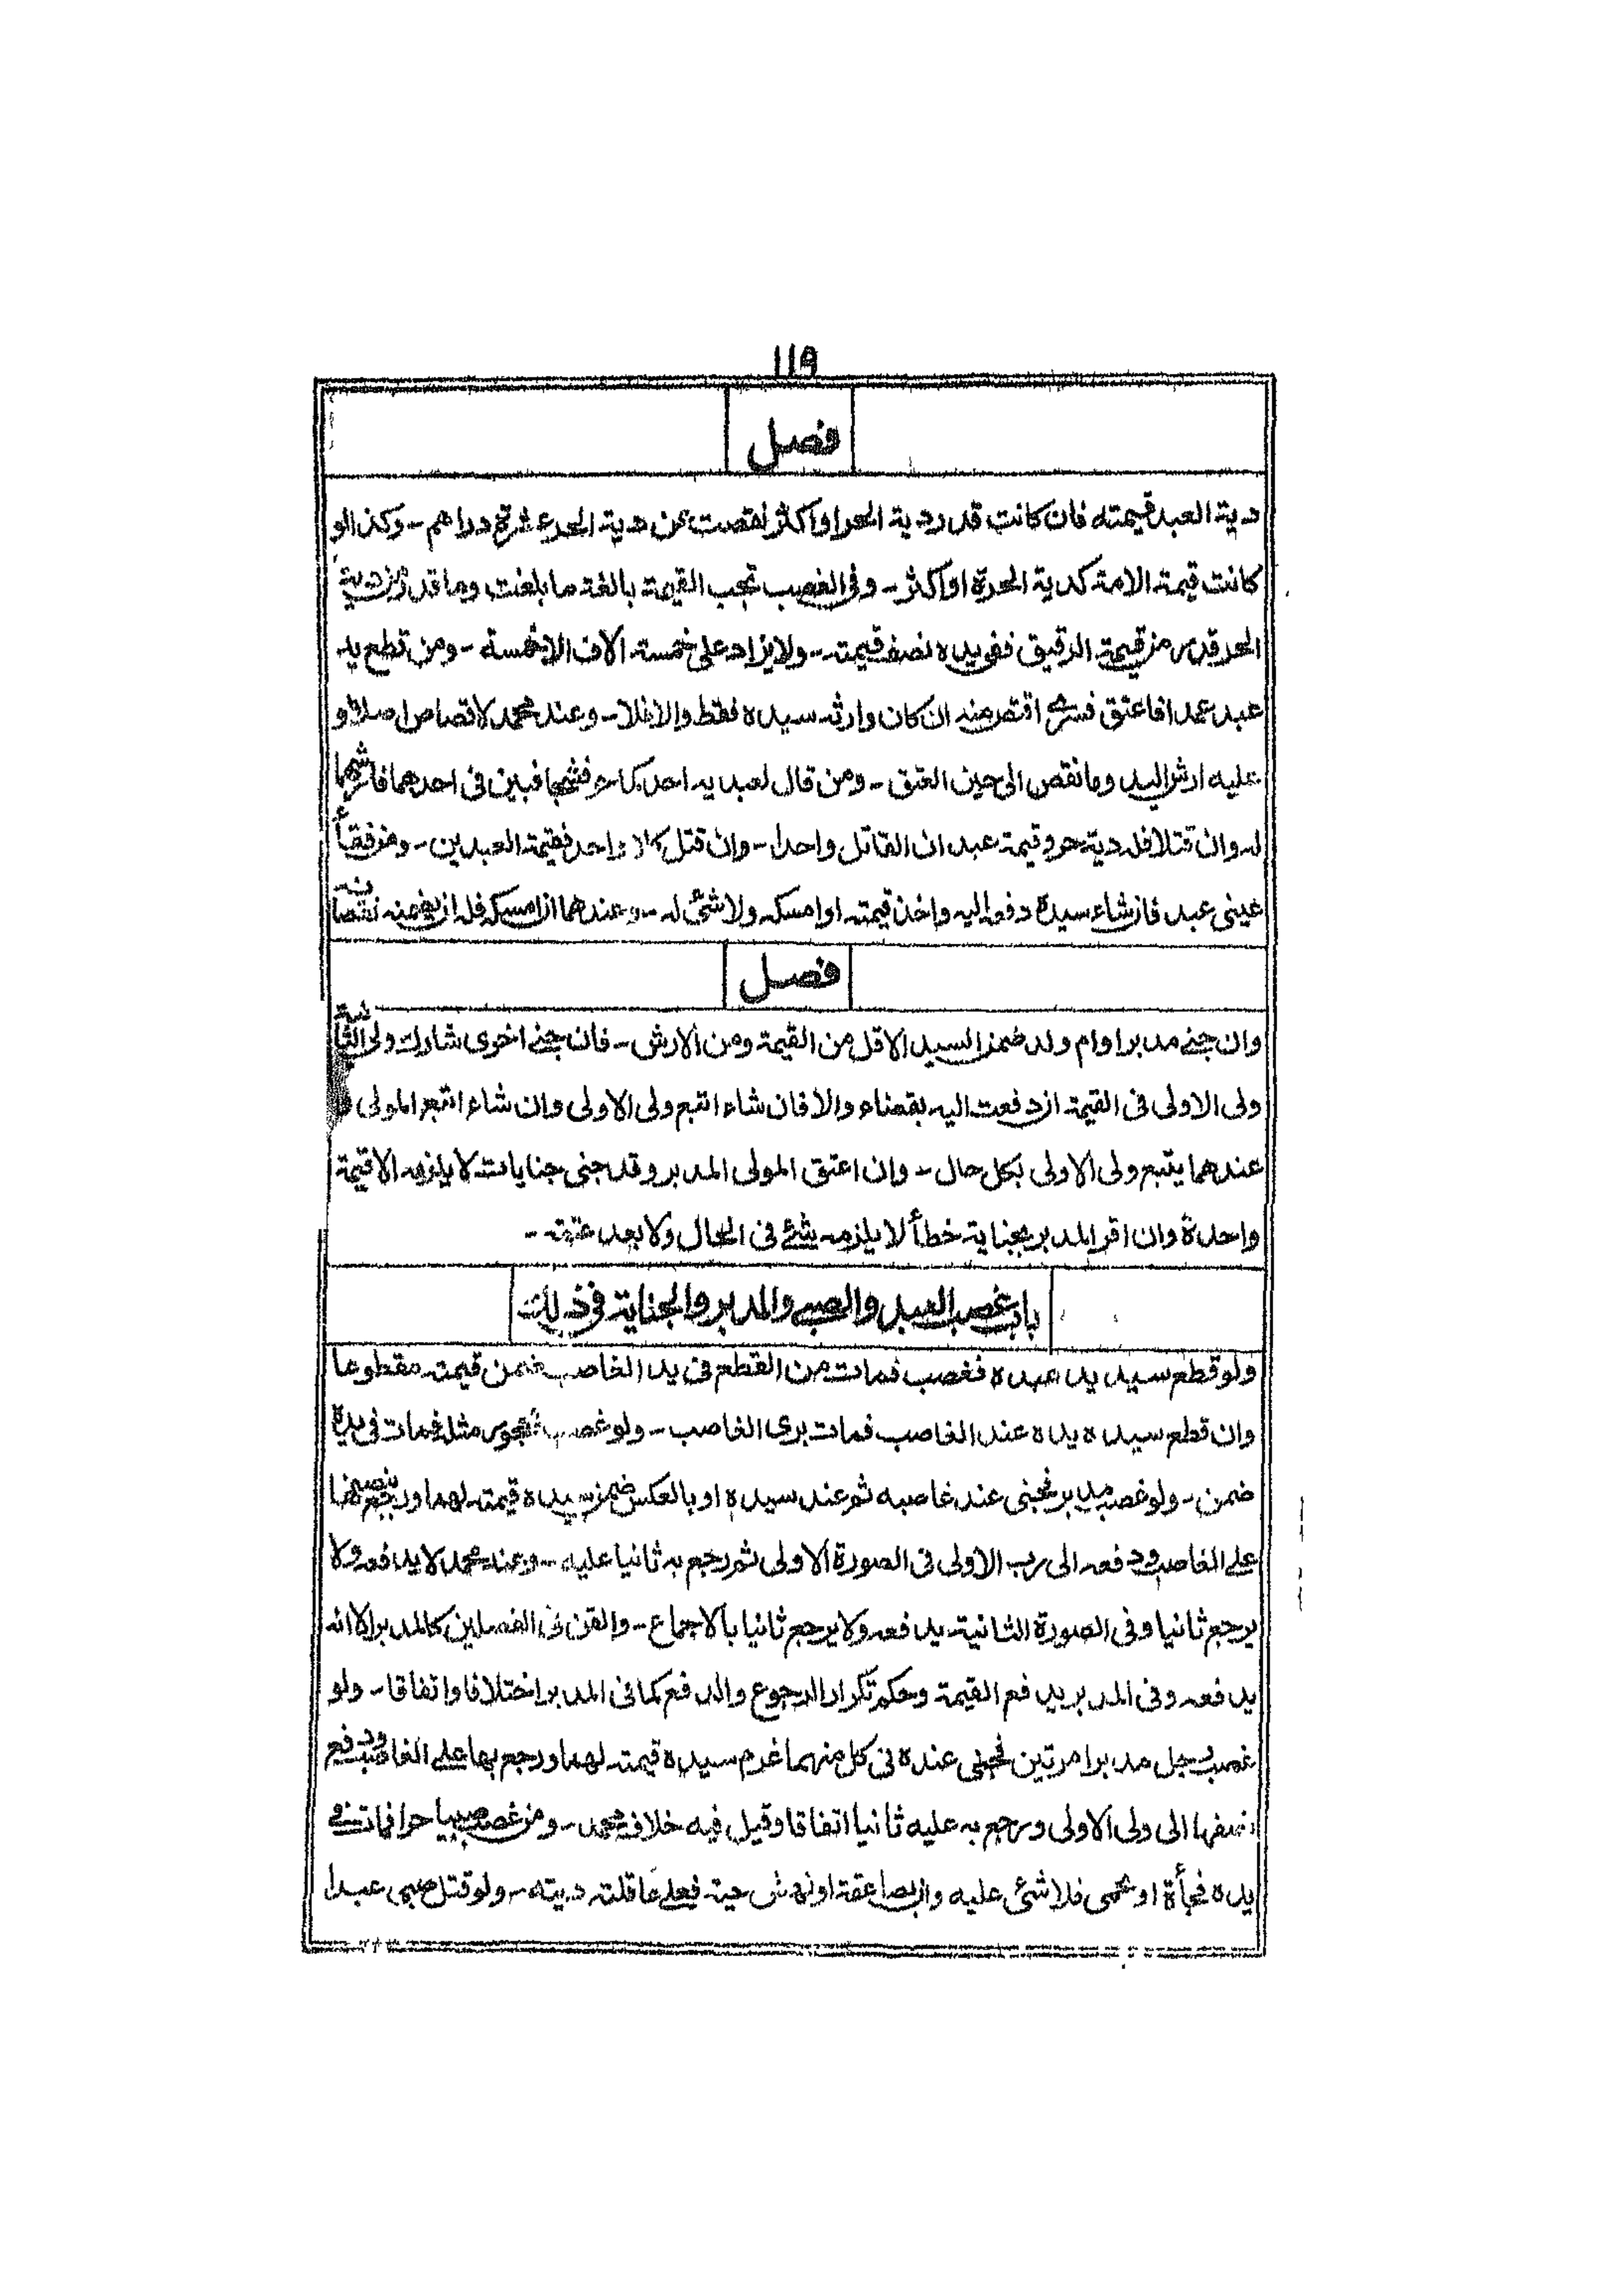 ١١٩
فصل
دية العبد قيمته فان كانت قدر دية الحر او اكثر نقصت عن دية الحر عشرة دراهم - وكذا لو
كانت قيمة الامة كدية الحرة او اكثر - وفى الغصب تجب القيمة بالغة ما بلغت وما قدر من دية
الحر قدر من قيمة الرقيق ففى يده نصف قيمته - ولا يزاد على خمسة الاف الا خمسة - ومن قطع يد
عبد عمدا فاعتق فسرى اقتص منه ان كان وارثه سيده فقط والا فلا - وعند محمد لا قصاص اصلا و
عليه ارش اليد وما نقص الى حين العتق - ومن قال لعبديه احدكما حر فشجا فبين فى احدهما فارشهما
له وان قتلا فله دية حر وقيمة عبد ان القاتل واحدا - وان قتل كلا واحد فقيمة العبدين - ومن فقأ
عينى عبد فان شاء سيده دفعه اليه واخذ قيمته او امسكه ولا شئ له - وعندهما ان امسكه فله ان يضمنه نقصانه
فصل
وان جنى مدبر او ام ولد ضمن السيد الاقل من القيمة ومن الارش - فان جنى اخرى شارك ولى الثانية
ولى الاولى فى القيمة ان دفعت اليه بقضاء والا فان شاء اتبع ولى الاولى وان شاء اتبع المولى و
عندهما يتبع ولى الاولى بكل حال - وان اعتق المولى المدبر وقد جنى جنايات لا يلزمه الا قيمة
واحدة وان اقر المدبر بجناية خطأ لا يلزمه شئ فى الحال ولا بعد عتقه -
باب غصب العبد والصبى والمدبر والجناية فى ذلك
ولو قطع سيد يد عبده فغصب فمات من القطع فى يد الغاصب ضمن قيمته مقطوعا
وان قطع سيده يده عند الغاصب فمات برئ الغاصب - ولو غصب محجور مثله فمات فى يده
ضمن - ولو غصب مدبر فجنى عند غاصبه ثم عند سيده او بالعكس ضمن سيده قيمته لهما ورجع بنصفها
على الغاصب ودفعه الى رب الاولى فى الصورة الاولى ثم رجع به ثانيا عليه - وعند محمد لا يدفعه ولا
يرجع ثانيا وفى الصورة الثانية يدفعه ولا يرجع ثانيا بالاجماع - والقن فى الفصلين كالمدبر الا انه
يدفعه وفى المدبر يدفع القيمة وحكم تكرار الرجوع والدفع كما فى المدبر اختلافا واتفاقا - ولو
غصب رجل مدبرا مرتين فجنى عنده فى كل منهما غرم سيده قيمته لهما ورجع بها على الغاصب ودفع
نصفها الى ولى الاولى ورجع به عليه ثانيا اتفاقا وقيل فيه خلاف محمد - ومن غصب صبيا حرا فمات فى
يده فجأة او بحمى فلا شئ عليه وان بصاعقة او نهش حية فعلى عاقلته ديته - ولو قتل صبى عبدا